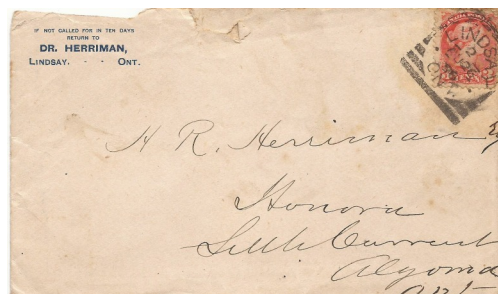 IF NOT CALLED FOR IN TEN DAYS
RETURN TO
DR. HERRIMAN,
LINDSAY. - - ONT.
LINDSAY
ONT
H R. Herriman Esq
Honora
Little Current
Algoma
Ont